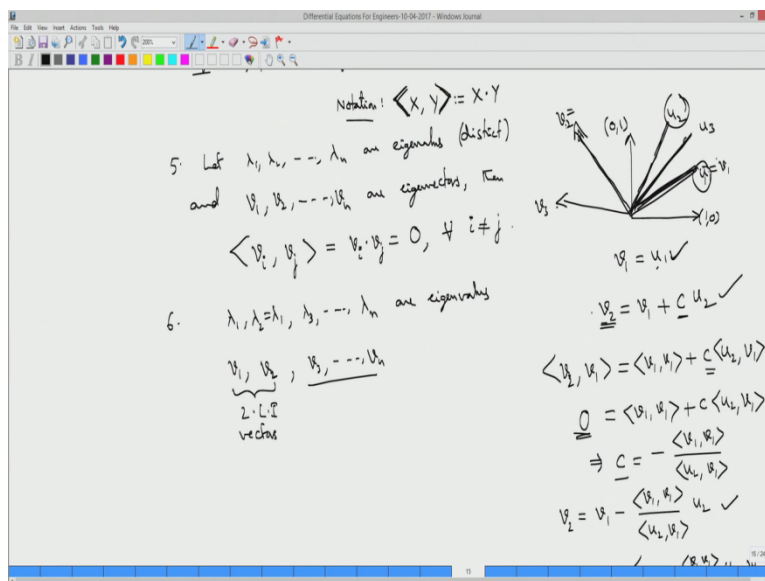 Differential Equations For Engineers-10-04-2017 - Windows Journal
File Edit View Insert Actions Tools Help
200%
B I
Notation: ⟨X, Y⟩ := X·Y
5. Let λ₁, λ₂, ---, λₙ are eigenvalues (distict)
and v₁, v₂, ---, vₙ are eigenvectors, then
⟨vᵢ, vⱼ⟩ = vᵢ·vⱼ = 0, ∀ i ≠ j.
6. λ₁, λ₂=λ₁, λ₃, ---, λₙ are eigenvalues
v₁, v₂, v₃, ---, vₙ
2·L·I
vectors
v₂= (0,1) u₂ u₃
u₁=v₁
v₃ (1,0)
v₁ = u₁ ✓
v₂ = v₁ + c u₂ ✓
⟨v₂, v₁⟩ = ⟨v₁, v₁⟩ + c⟨u₂, v₁⟩
0 = ⟨v₁, v₁⟩ + c⟨u₂, v₁⟩
⇒ c = - ⟨v₁, v₁⟩ / ⟨u₂, v₁⟩
v₂ = v₁ - ⟨v₁, v₁⟩ / ⟨u₂, v₁⟩ u₂ ✓
15 / 24
15